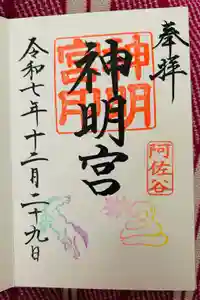 奉拝
神明
宮
神明宮
阿佐谷
令和七年十二月二十九日